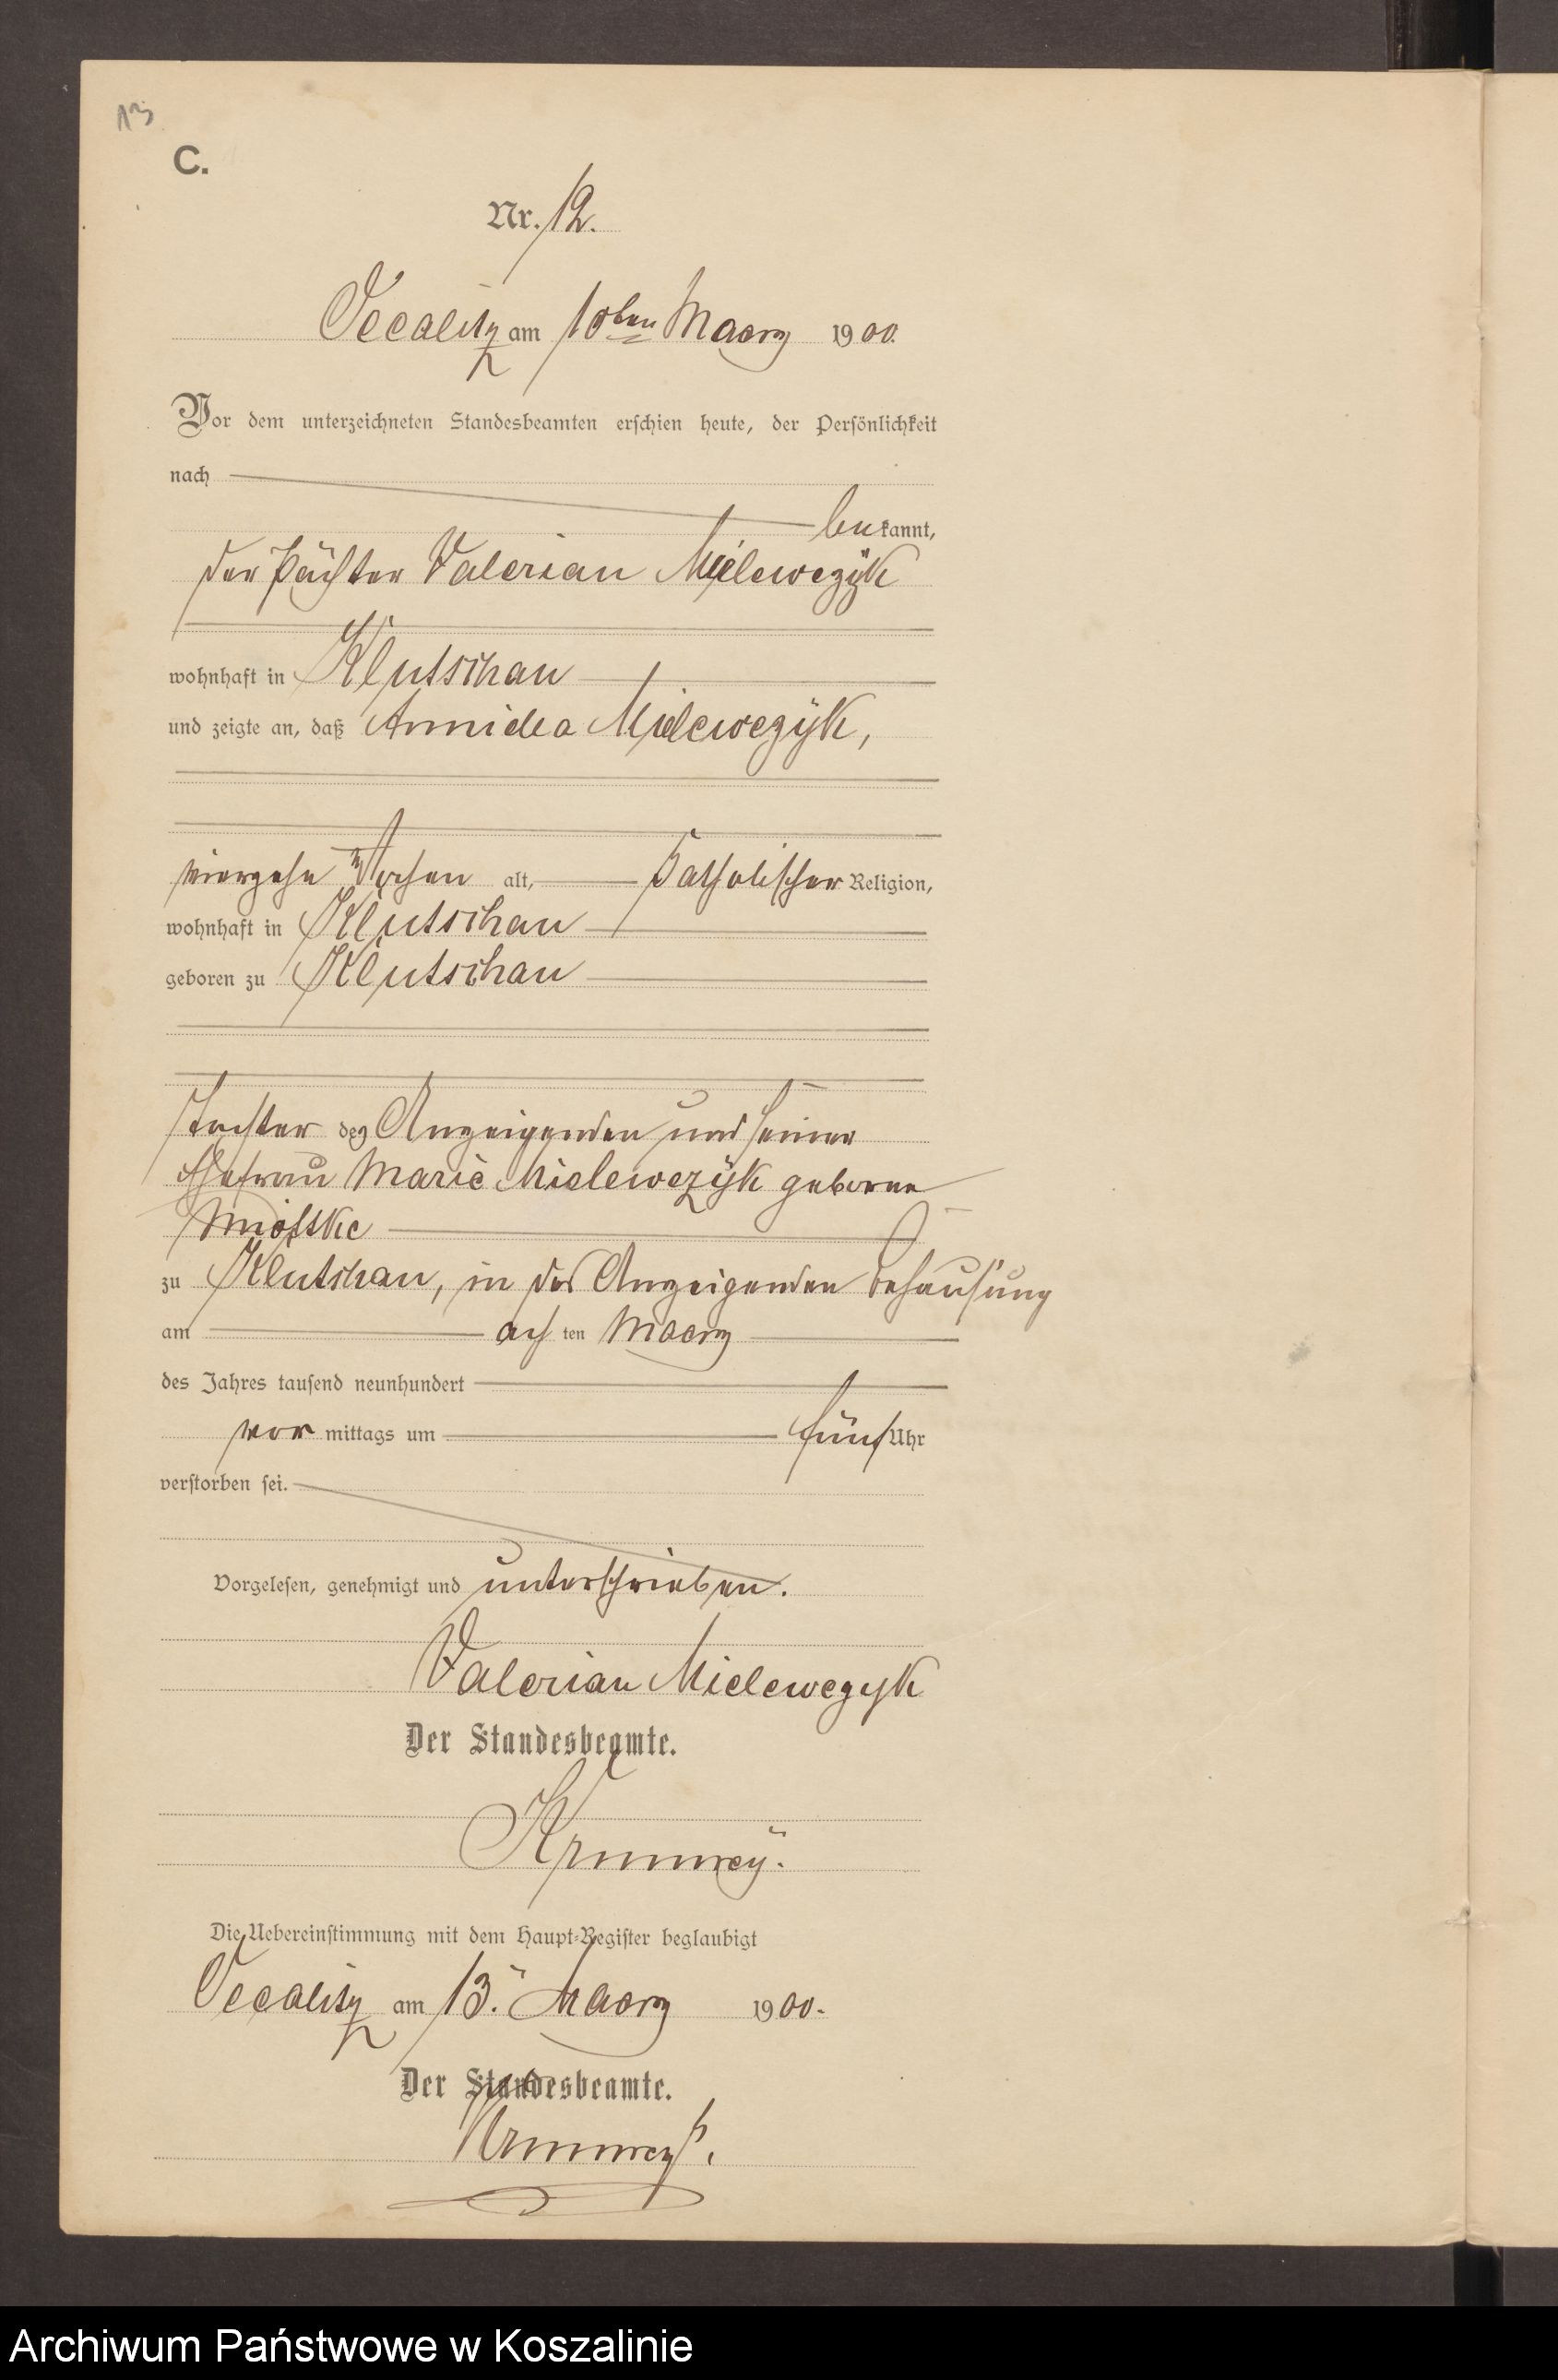 13
C.
Nr. 12.
Occalitz am 10ten Maerz 1900.
Vor dem unterzeichneten Standesbeamten erschien heute, der Persönlichkeit
nach
bekannt,
der Pächter Valerian Mielewczÿk
wohnhaft in Klutschau
und zeigte an, daß Mielewczÿk,
vierzehn Wochen alt, katholischer Religion,
wohnhaft in Klutschau
geboren zu Klutschau
Tochter des Anzeigenden und seiner
Ehefrau Marie Mielewczÿk geborne
zu Klutschau, in des Anzeigenden Behausung
am achten Maerz
des Jahres tausend neunhundert
vor mittags um fünf Uhr
verstorben sei.
Vorgelesen, genehmigt und unterschrieben.
Valerian Mielewczyk
Der Standesbeamte.
Die Uebereinstimmung mit dem Haupt-Register beglaubigt
Occalitz am 13. Maerz 1900.
Der Standesbeamte.
Archiwum Państwowe w Koszalinie